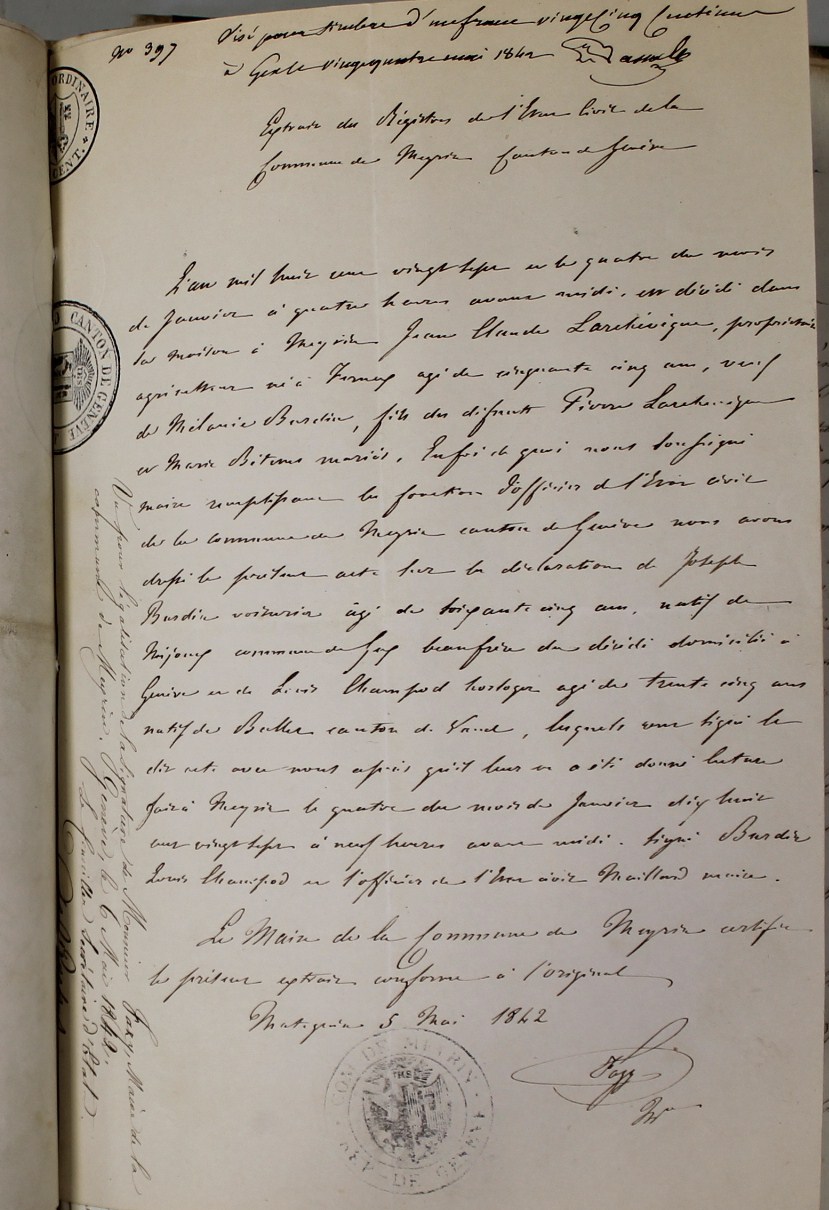 No 397
Visé pour timbre d'un franc vingt cinq centimes
à Gex le vingt quatre mai 1842
Extrait des Régistres de l'Etat Civil de la
Commune de Meyrin Canton de Genève
L'an mil huit cent vingt sept et le quatre du mois
de Janvier à quatre heures avant midi, est décédé dans
sa maison à Meyrin Jean Claude Larchévêque, propriétaire
agriculteur né à Ferney agé de cinquante cinq ans, veuf
de Mélanie Burdin, fils des défunts Pierre Larchevêque
et Marie mariés. En foi de quoi nous soussigné
maire remplissant les fonctions d'officier de l'Etat civil
de la commune de Meyrin canton de Genève nous avons
dressé le présent acte sur la déclaration de Joseph
Burdin voiturier âgé de soixante cinq ans, natif de
Mijoux commune de Gex beaufrère du décédé domicilié à
Genève et de Louis Champod horloger agé de trente cinq ans
natif de Bulle canton de Vaud, lesquels ont signé le
dit acte avec nous après qu'il leur en a été donné lecture
fait à Meyrin le quatre du mois de Janvier dix huit
cent vingt sept à neuf heures avant midi. signé Burdin
Louis Champod et l'officier de l'Etat civil Maillard maire.
Le Maire de la Commune de Meyrin certifie
le présent extrait conforme à l'original
Mategnin 5 Mai 1842
Fazy
COM. DE MEYRIN
CANTON DE GENÈVE
ORDINAIRE
CENT.
Vu pour légalisation de la signature de Monsieur Fazy, Maire de la
commune de Meyrin. Genève, le 6 Mai 1842.
Le Conseiller Secrétaire d'Etat.